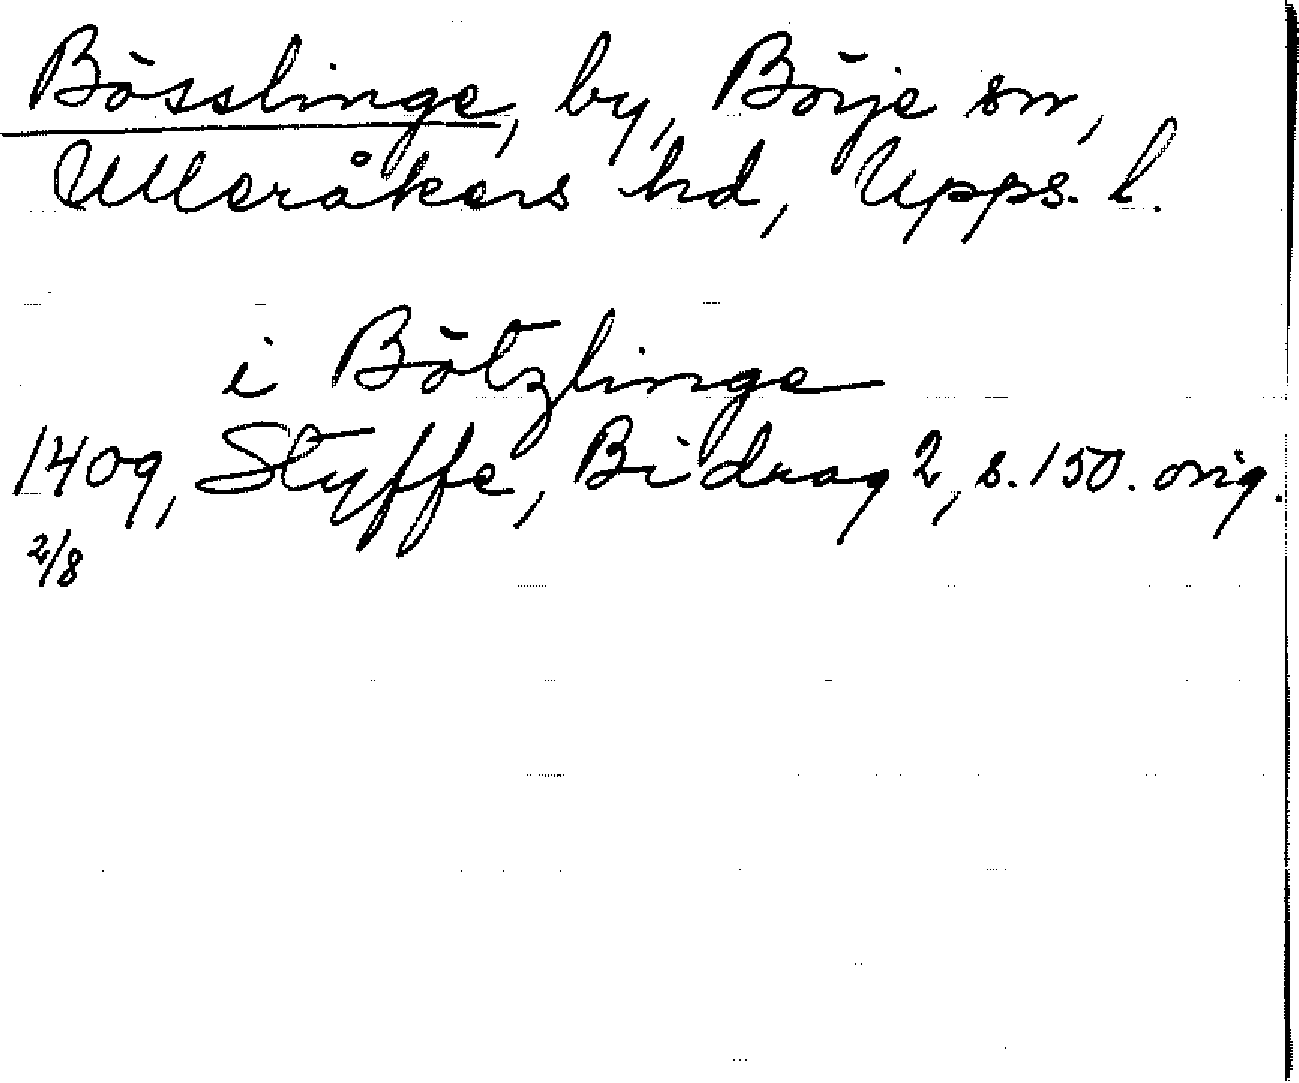 Bösslinge, by, Börje sn,
Ulleråkers hd, Upps. l.
i Bötzlinge
1409, Styffe, Bidrag 2, s. 150. orig.
2/8